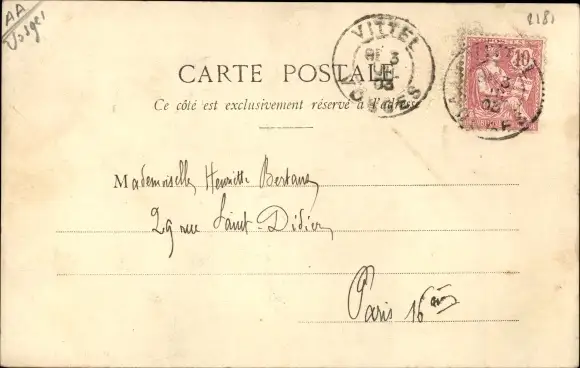 AA
Vosges
2181
VITTEL
3
03
VOSGES
10
CARTE POSTALE
Ce côté est exclusivement réservé à l'adresse
Mademoiselle Henriette
29 rue Saint-Didier
Paris 16ème